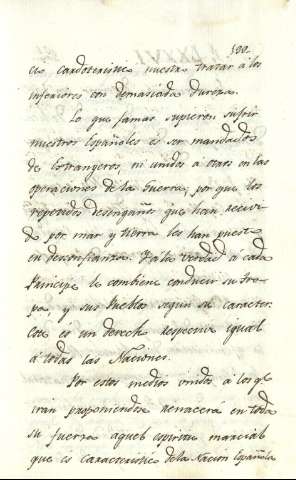 100.
es caracteristica nuestra tratar á los
inferiores con demasiada dureza.
Lo que jamas supieron sufrir
nuestros Españoles es ser mandados
de Estrangeros, ni unidos á otros en las
operaciones de la Guerra, por que los
repetidos desengaños que han recivi-
do por mar y tierra les han puesto
en desconfianza. Y á la verdad á cada
Principe le combiene conducir su tro-
pa, y sus Pueblos segun su caracter.
Este es un derecho respectivo igual
á todas las Naciones.
Por estos medios unidos á los qe.
iran proponiendose renacerá en toda
su fuerza aquel espiritu marcial
que es caracteristico de la Nacion Española